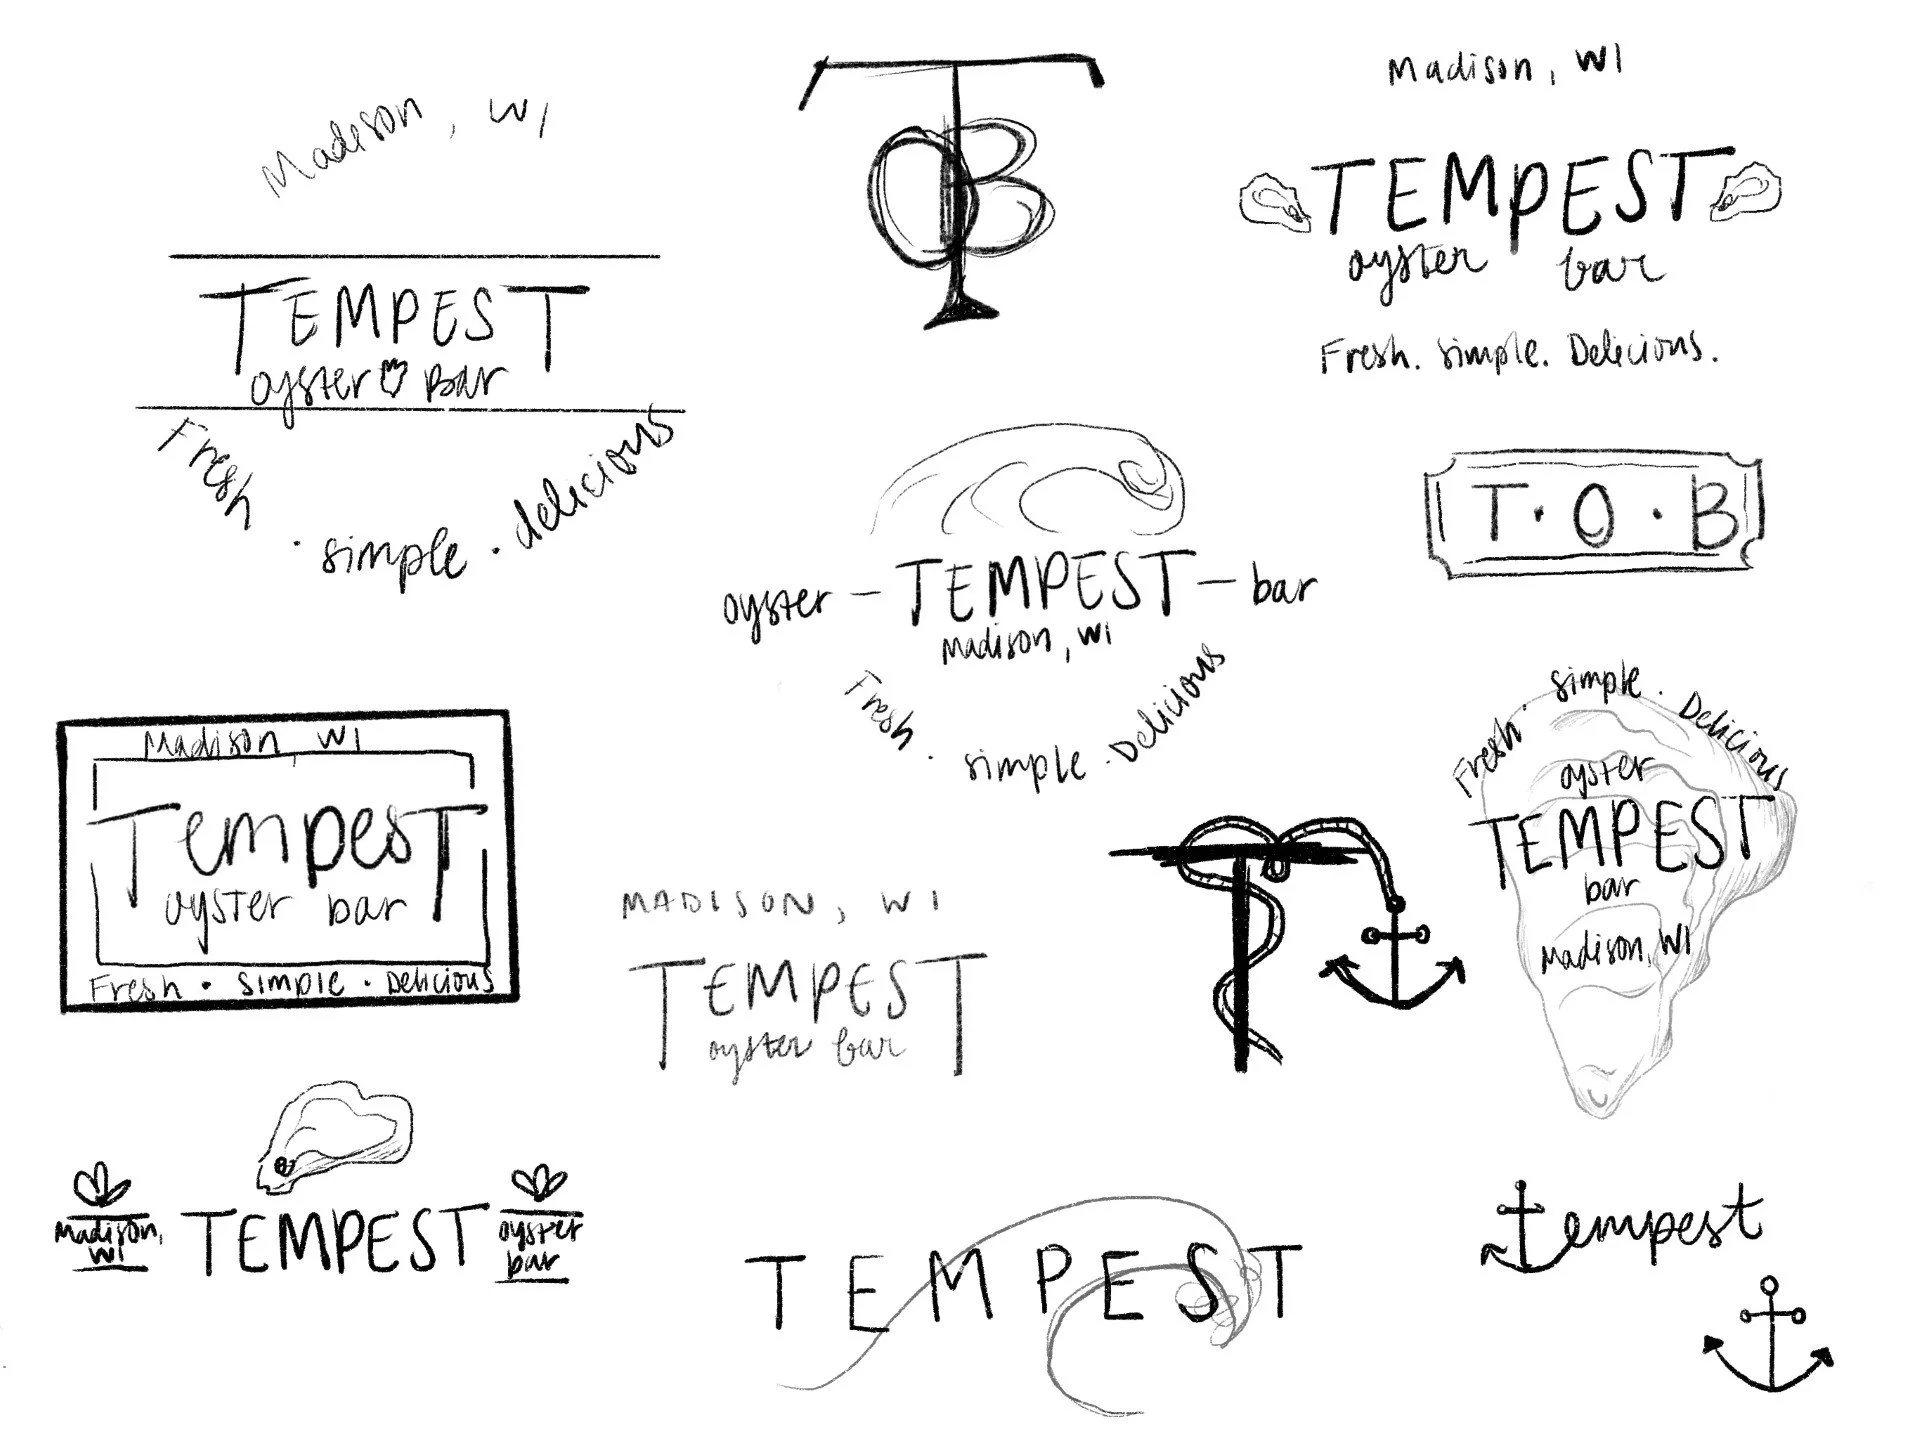 Madison, WI
TEMPEST
oyster Bar
Fresh · simple · delicious
TOB
Madison, WI
TEMPEST
oyster bar
Fresh. simple. Delicious.
oyster — TEMPEST — bar
Madison, WI
Fresh · simple · Delicious
T·O·B
Madison, WI
TempesT
oySTer bar
Fresh · simple · Delicious
MADISON, WI
TEMPEST
oyster bar
T
Fresh · simple · Delicious
oyster
TEMPEST
bar
Madison, WI
Madison,
WI
TEMPEST
oyster
bar
TEMPEST
tempest